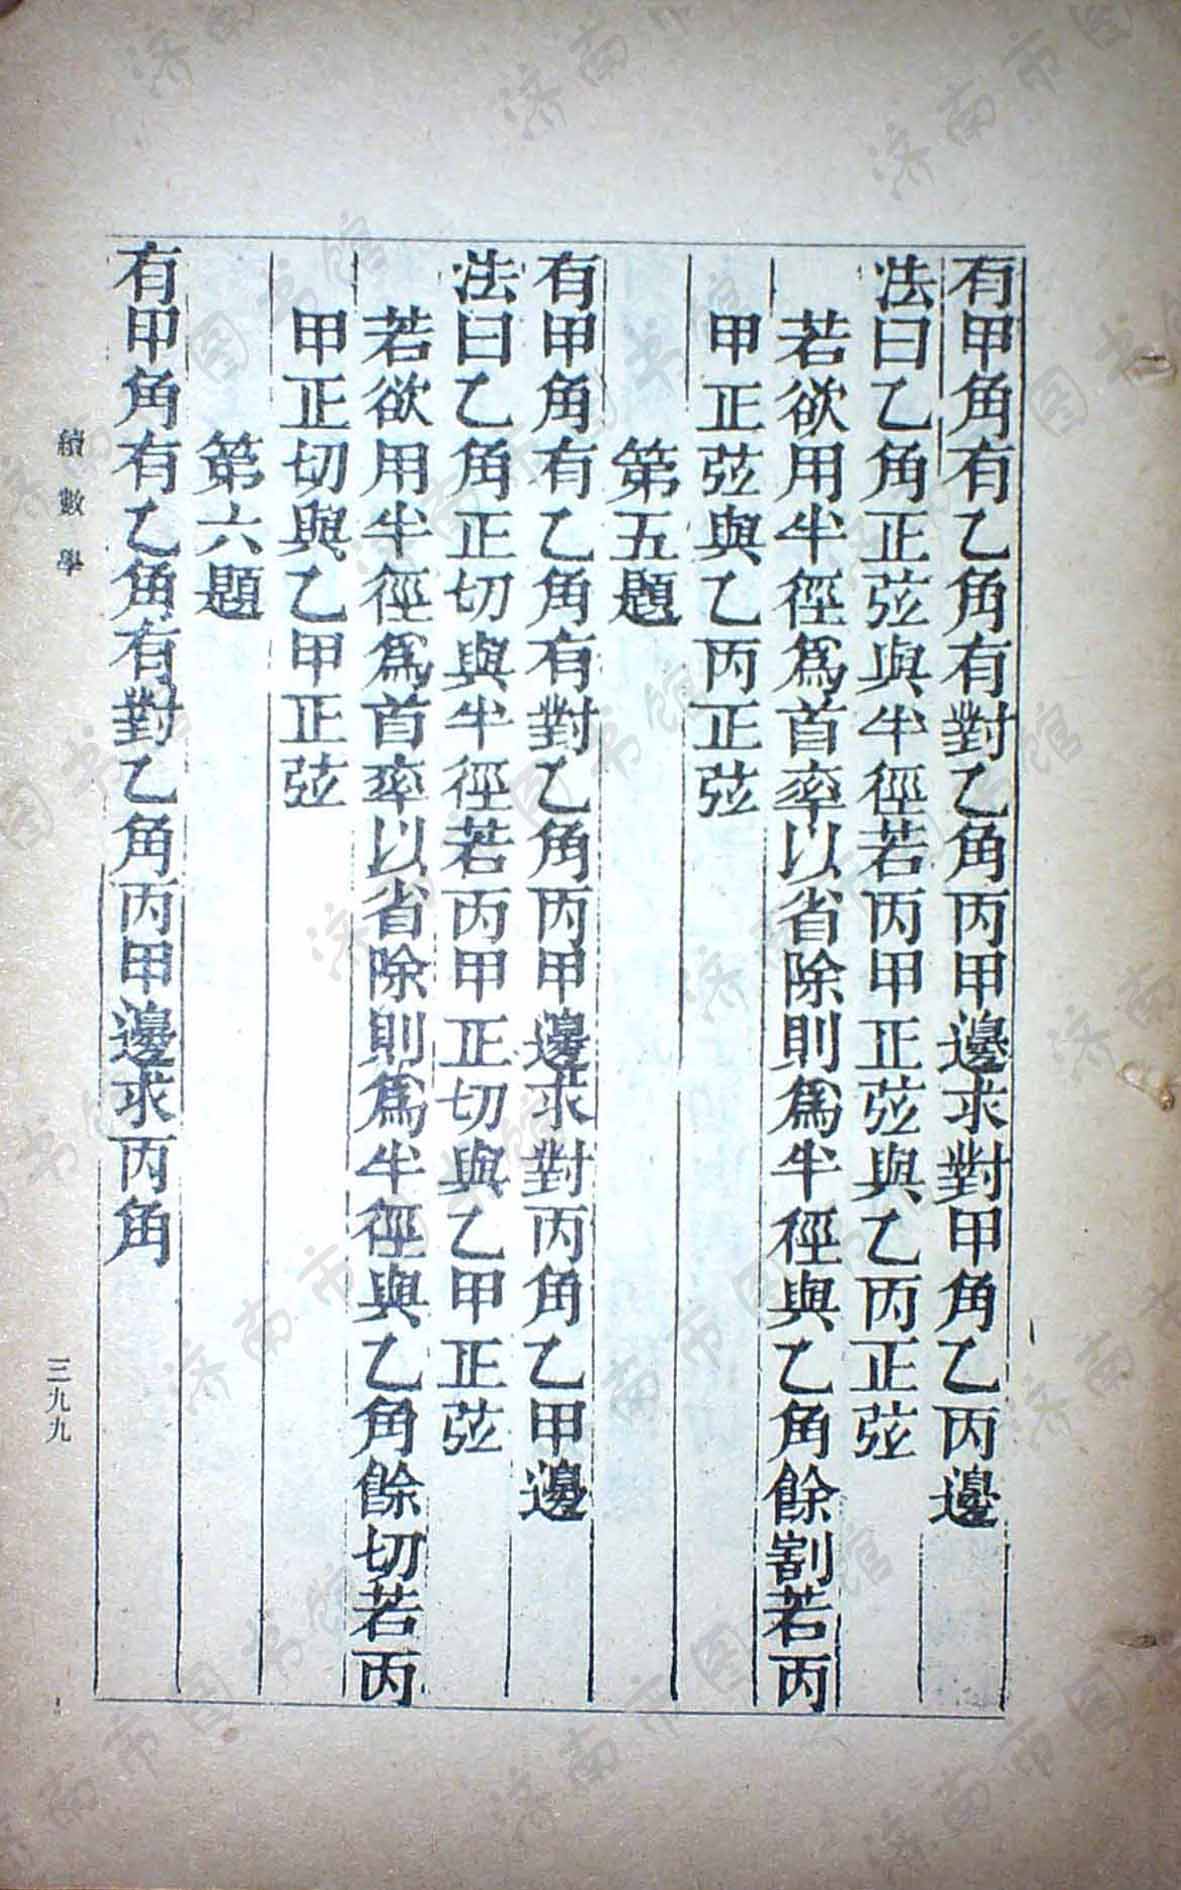 有甲角有乙角有對乙角丙甲邊求對甲角乙丙邊
法曰乙角正弦與半徑若丙甲正弦與乙丙正弦
若欲用半徑爲首率以省除則爲半徑與乙角餘割若丙
甲正弦與乙丙正弦
第五題
有甲角有乙角有對乙角丙甲邊求對丙角乙甲邊
法曰乙角正切與半徑若丙甲正切與乙甲正弦
若欲用半徑爲首率以省除則爲半徑與乙角餘切若丙
甲正切與乙甲正弦
第六題
有甲角有乙角有對乙角丙甲邊求丙角
續數學
三九九
济南市图书馆